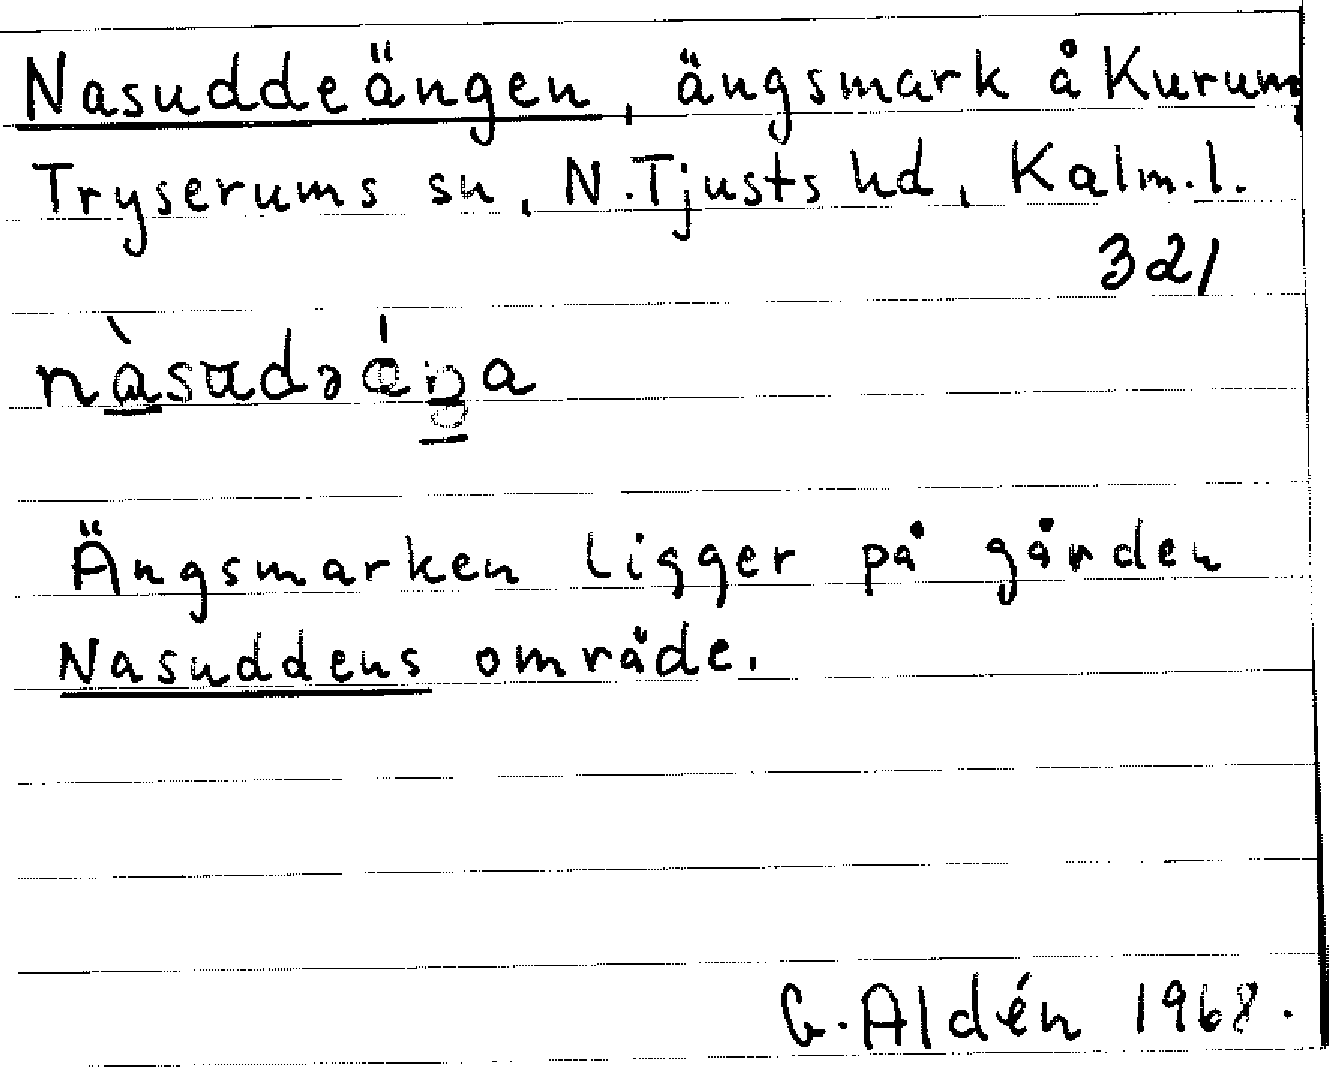 Nasuddeängen, ängsmark å Kurum,
Tryserums sn, N. Tjusts hd, Kalm. l.
321
Ängsmarken ligger på gården
Nasuddens område.
G. Aldén 1968.